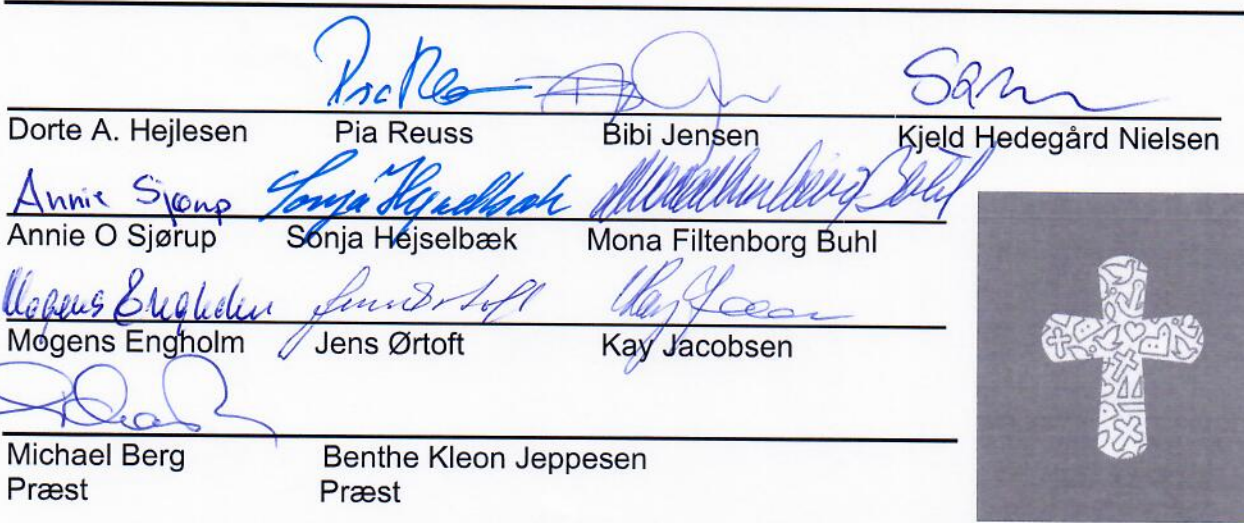 Dorte A. Hejlesen Pia Reuss Bibi Jensen Kjeld Hedegård Nielsen
Annie Sjørup
Annie O Sjørup Sonja Hejselbæk Mona Filtenborg Buhl
Mogens Engholm
Mogens Engholm Jens Ørtoft Kay Jacobsen
Michael Berg Benthe Kleon Jeppesen
Præst Præst